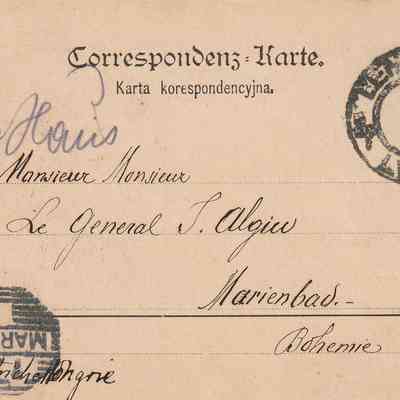 Correspondenz-Karte.
Karta korespondencyjna.
Haus
Marsieur Monsieur
Le General J. Algiu
Marienbad.-
Bohemie
MAR